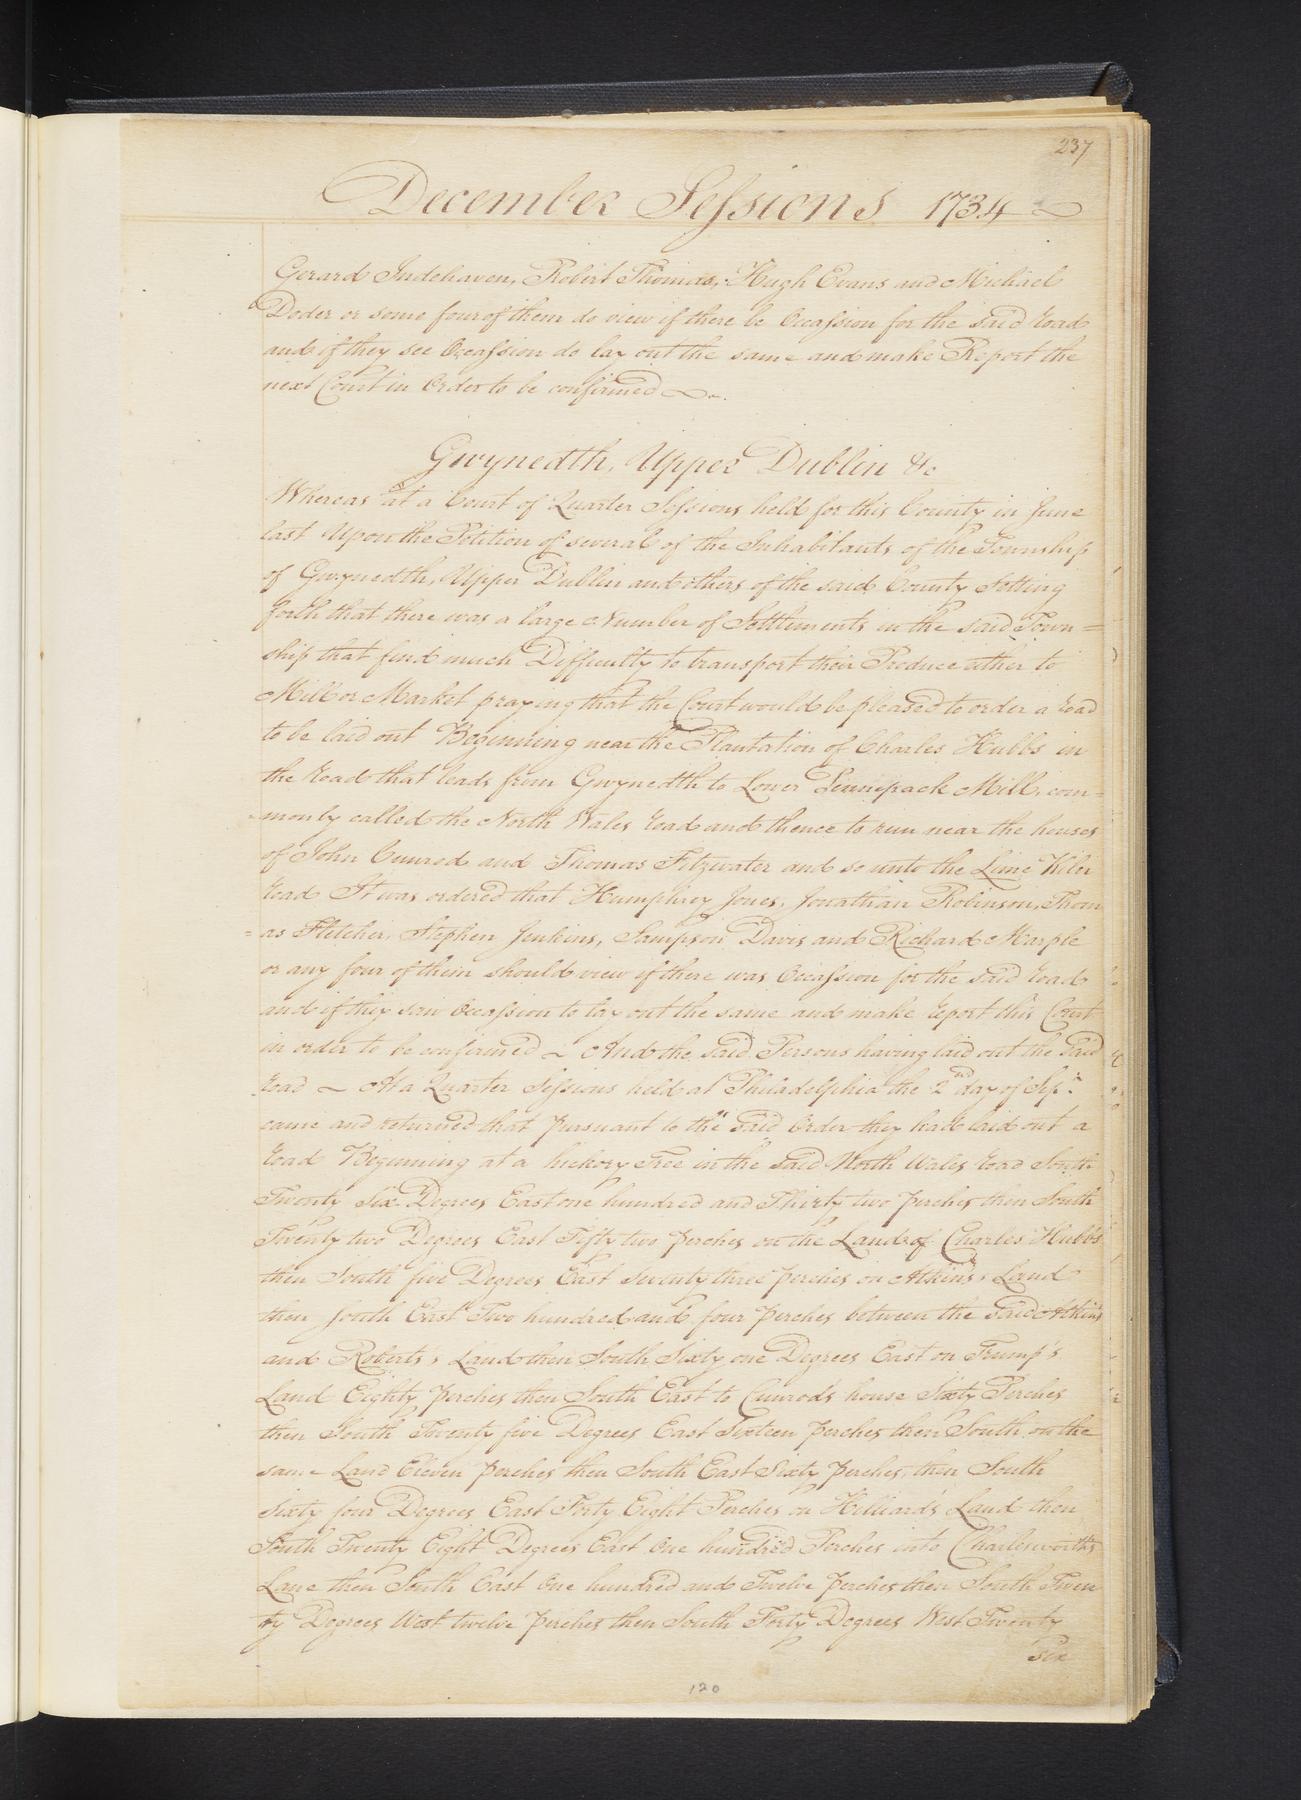 237
December Sessions 1734
Gerard Indehaven, Robert Thomas, Hugh Evans and Michael
Doder or some four of them do view if there be Occassion for the said road
and if they see Occassion do lay out the same and make Report the
next Court in Order to be confirmed
Gwynedth, Upper Dublin &c
Whereas at a Court of Quarter Sessions held for this County in June
last Upon the Petition of several of the Inhabitants of the Township
of Gwynedth, Upper Dublin and others of the said County Setting
forth that there was a large Number of Settlements in the said Town=
ship that find much Difficulty to transport their Produce either to
Mill or Market praying that the Court would be pleased to order a road
to be laid out Beginning near the Plantation of Charles Hubbs in
the road that leads from Gwynedth to Lower Pennepack Mill, com=
=monly called the North Wales road and thence to run near the houses
of John Cunrod and Thomas Fitzwater and so unto the Lime Kiln
road It was ordered that Humphrey Jones, Jonathan Robinson, Thom
=as Fletcher, Stephen Jenkins, Sampson Davis and Richard Marple
or any four of them should view if there was Occassion for the said road
and if they saw Occassion to lay out the same and make report this Court
in order to be confirmed ~ And the said Persons having laid out the said
road ~ At a Quarter Sessions held at Philadelphia the 2nd day of Sepr.
came and returned that pursuant to the said Order they had laid out a
road Beginning at a hickory Tree in the said North Wales road South
Twenty Six Degrees East one hundred and Thirty two perches then South
Twenty two Degrees East Fifty two perches on the Land of Charles Hubbs
then South five Degrees East Seventy three perches on Atkins's Land
then South East Two hundred and four perches between the said Atkins
and Roberts's Land then South Sixty one Degrees East on Trump's
Land Eighty perches then South East to Cunrod's house Sixty Perches
then South Twenty five Degrees East Sixteen perches then South on the
same Land Eleven perches then South East Sixty perches, then South
Sixty four Degrees East Forty Eight Perches on Hilliard's Land then
South Twenty Eight Degrees East One hundred Perches into Charlesworth's
Lane then South East One hundred and Twelve perches then South Twen
ty Degrees West twelve perches then South Forty Degrees West Twenty
Six
120